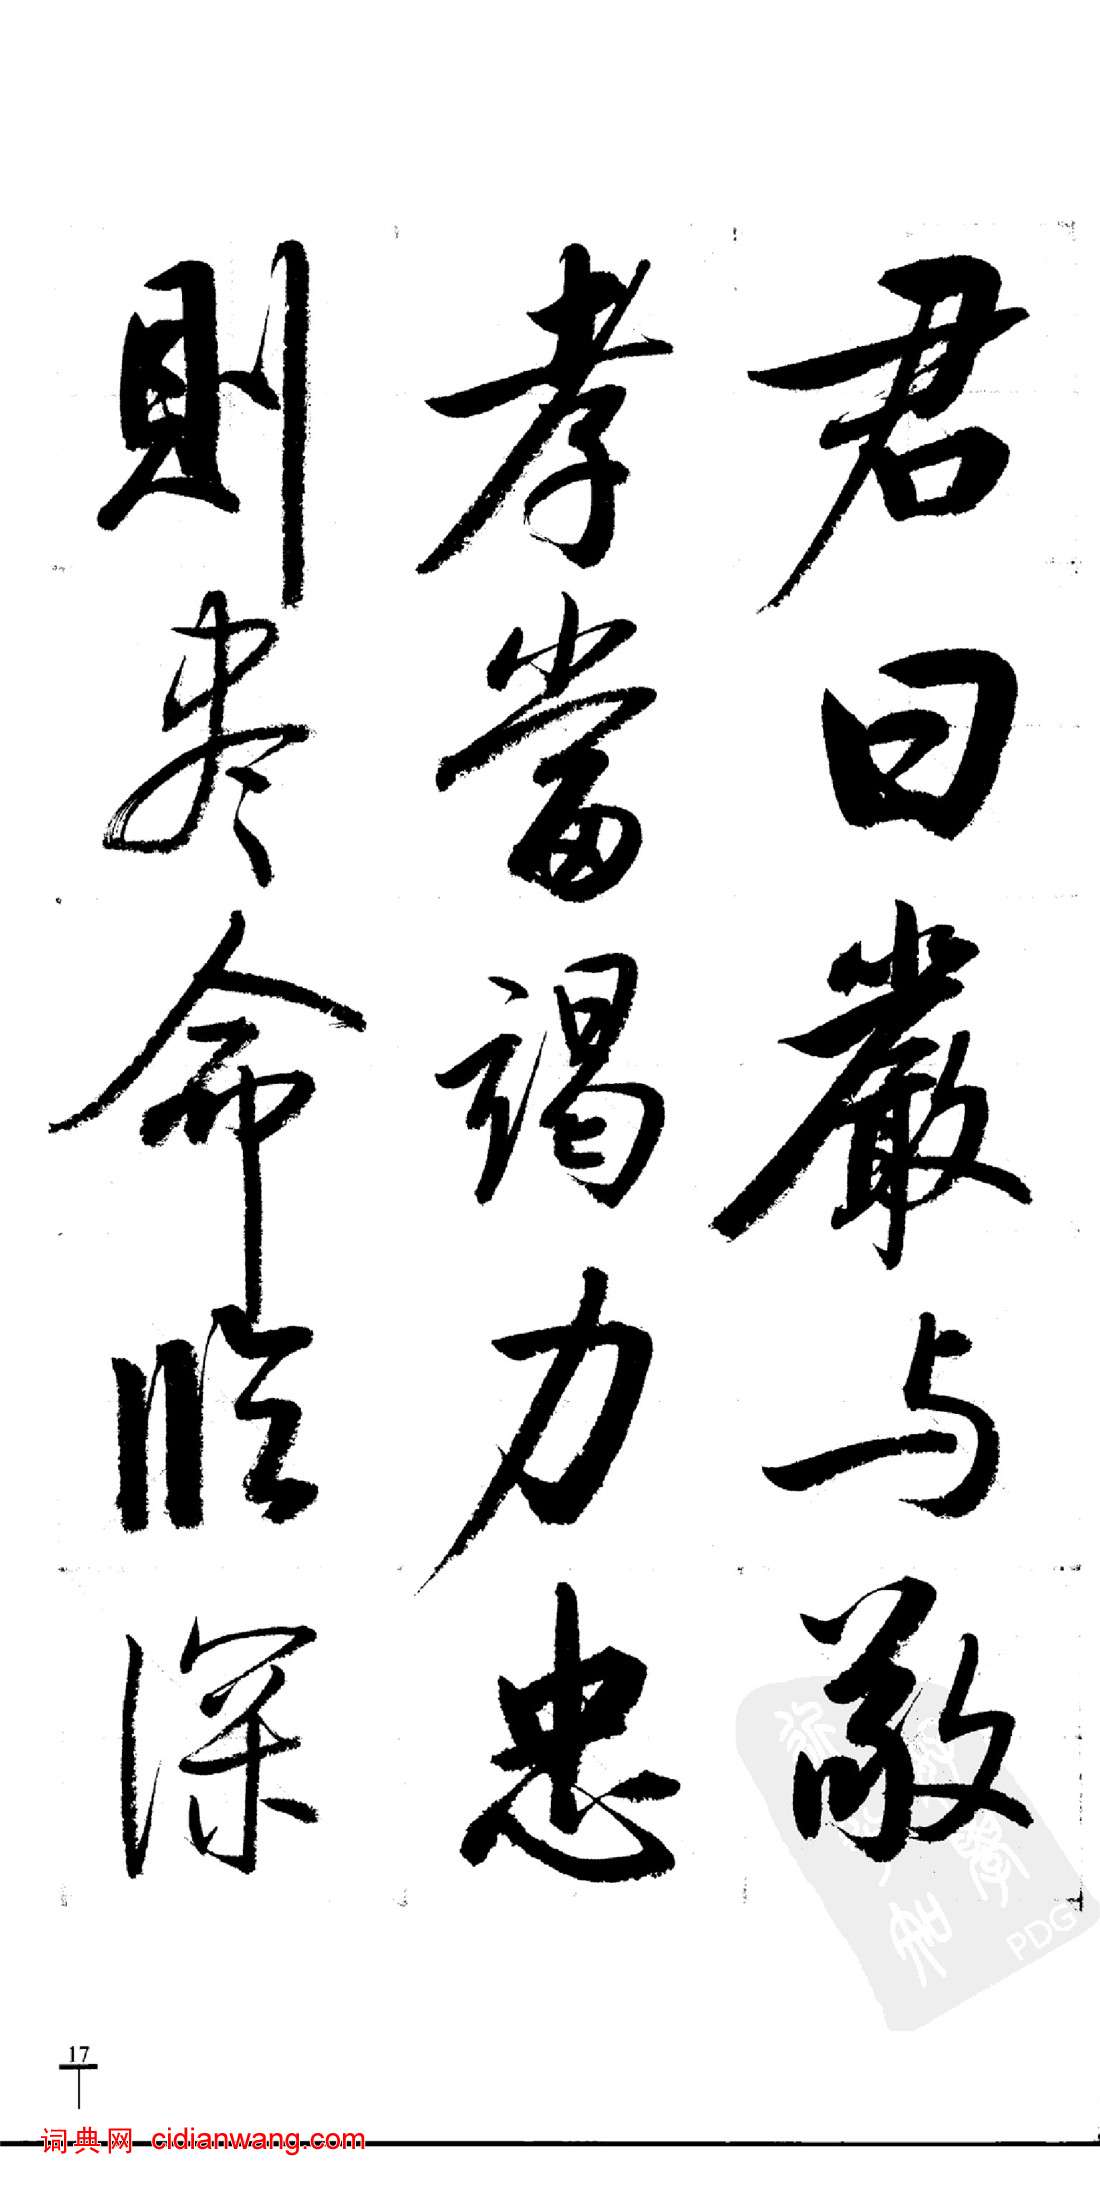 君曰嚴与敬
孝當竭力忠
則盡命臨深
17
词典网 cidianwang.com
PDG